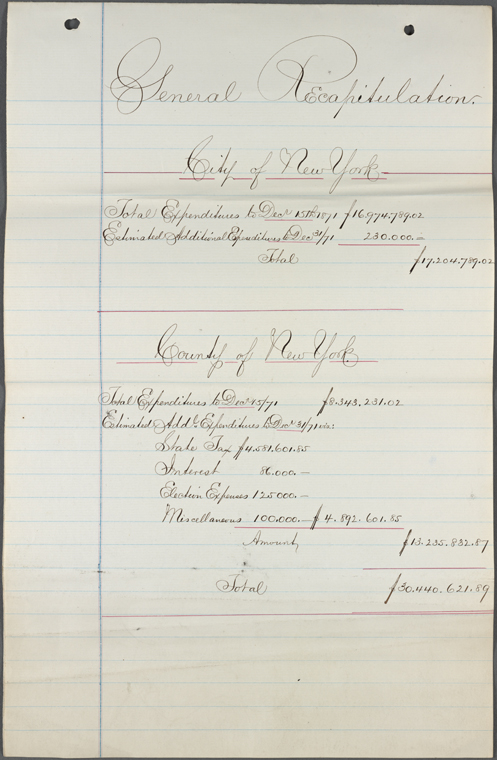 General Recapitulation.
City of New York
Total Expenditures to Decr 15th 1871 $16.974.789.02
Estimated Additional Expenditures to Decr 31/71 230.000.–
Total $17.204.789.02
County of New York
Total Expenditures to Decr 15/71 $8.343.231.02
Estimated Addl Expenditures to Decr 31/71 viz:
State Tax $4.581.601.85
Interest 86.000.–
Election Expenses 125.000.–
Miscellaneous 100.000.– $4.892.601.85
Amount, $13.235.832.87
Total $30.440.621.89